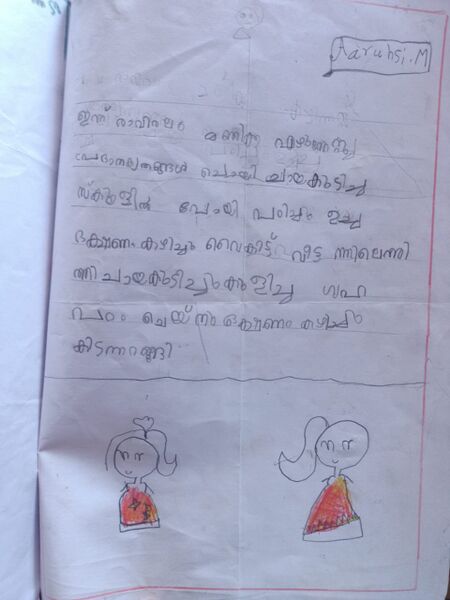 Aaruhsi.M
ഇന്ന് രാവിലെ മണിക്കു എഴുന്നേറ്റു
ചായകുടിച്ചു
സ്കൂളിൽ പോയി പഠിച്ചു ഉച്ച
ഭക്ഷണം കഴിച്ചു വൈകിട്ട് വീട്ട ത്തിലെത്തി
ത്തി ചായകുടിച്ചുംകുളിച്ചു ഗൃഹ
പാഠം ചെയ്തു ഭക്ഷണം കഴിച്ചു
കിടന്നുറങ്ങി